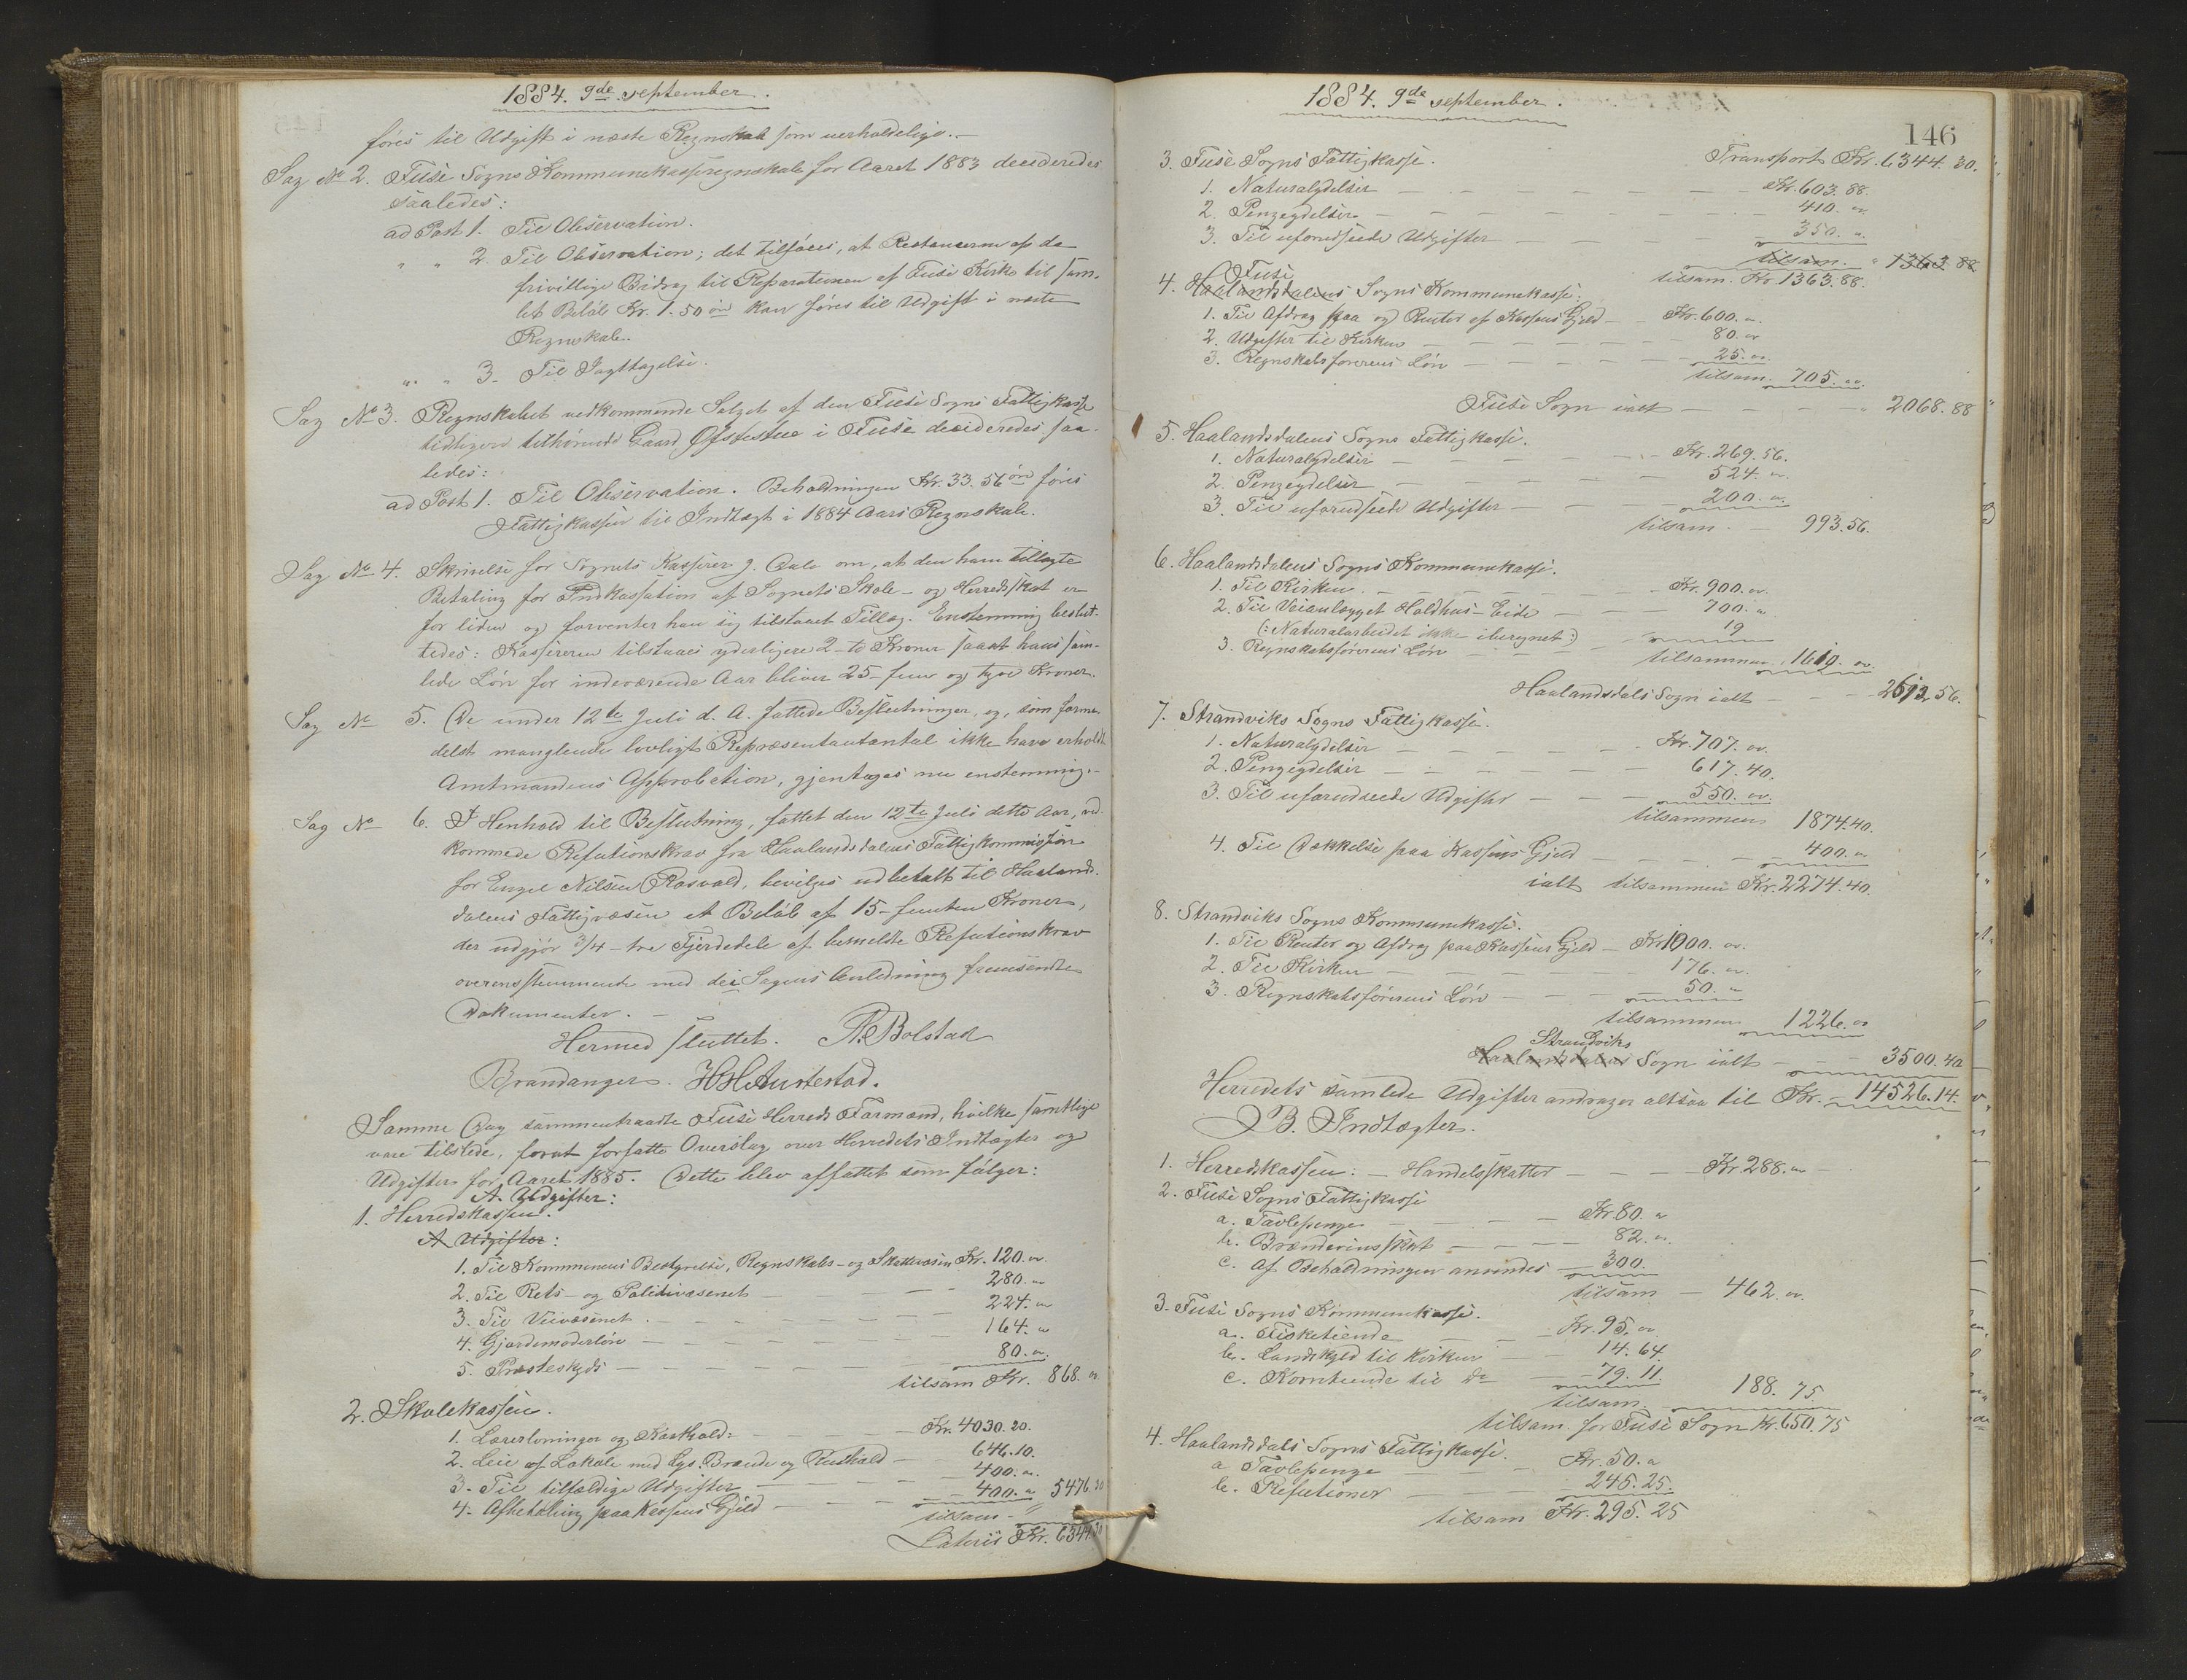 1884. 9de september.
føres til Udgift i næste Regnskab som uerholdelige.-
Sag No 2. Fuse Sogns Kommunekasseregnskab for Aaret 1883 decideredes
saaledes:
ad Post 1. Til Observation.
" " 2. Til Observation; det tilføies, at Restancerne af de
frivillige Bidrag til Reparationen af Fuse Kirke til sam-
let Beløb Kr. 1.50 øre kan føres til Udgift i næste
Regnskab.
" " 3. Til Iagttagelse.
Sag No 3. Regnskabet vedkommende Salget af den Fuse Sogns Fattigkasse
tidligere tilhørende Gaard i Fuse decideredes saa-
ledes:
ad Post 1. Til Observation. Beholdningen Kr. 33.56 øre føres
Fattigkassen til Indtægt i 1884 Aars Regnskab.
Sag No 4. Skrivelse for Sognets Kasserer J. om, at den ham tillagte
Betaling for Indkassation af Sognets Skole- og Herredsskat er
for liden og forventer han sig tilstaaet Tillæg. Enstemmig beslut-
tedes: Kassereren tilstaaes yderligere 2- to Kroner saaat hans sam-
lede Løn for indeværende Aar bliver 25- fem og tyve Kroner.
Sag No 5. De under 12te Juli d. A. fattede Beslutninger, og, som forme-
delst manglende lovligt Repræsentantantal ikke have erholdt
Amtmandens Approbation, gjentages nu enstemmig.-
Sag No 6. I Henhold til Beslutning, fattet den 12te Juli dette Aar, ved-
kommede Refutionskrav fra Haalandsdalens Fattigkommission
for Engel Nilsen Røsvald, bevilges udbetalt til Haalands-
dalens Fattigvæsen et Beløb af 15- femten Kroner,
der udgjør 3/4 - tre Fjerdedele af bemeldte Refutionskrav
overensstemmende med de i Sagens Anledning fremsendte
Dokumenter. -
Hermed sluttet. R. Bolstad
Brandanger. H H Austestad.
Samme Dag sammentraadte Fuse Herreds Formænd, hvilke samtlige
vare tilstede, forat forfatte Overslag over Herredets Indtægter og
Udgifter for Aaret 1885. Dette blev affattet som følger:
A. Udgifter:
1. Herredskassen.
A Udgifter:
1. Til Kommunens Bestyrelse, Regnskabs- og Skattevæsen Kr. 120. "
2. Til Rets- og Politivæsenet — 280. "
3. Til Veivæsenet. — 224. "
4. Gjordemoderløn — 164. "
5. Præsteskyds — 80. "
tilsam Kr. 868. "
2. Skolekassen.
1. Lærerlønninger og Kosthold: — Kr. 4030.20.
2. Leie af Lokale med Lys, Brænde og Renhold — 646.10.
3. Til tilfældige Udgifter — 400. "
4. Afbetaling paa Kassens Gjeld — 400. " 5476.30
tilsam. "
Lateris Kr. 6344.30
1884. 9de september.
146
Transport Kr. 6344.30.
3. Fuse Sogns Fattigkasse.
1. Naturalydelser — Kr. 603.88.
2. Pengeydelser — 410. "
3. Til uforudseede Udgifter — 350. "
tilsam. " 1363.88
tilsam. Kr. 1363.88.
Fuse
4. Haalandsdalens Sogns Kommunekasse:
1. Til Afdrag paa og Renter af Kassens Gjeld — Kr. 600. "
2. Udgifter til Kirken — 80. "
3. Regnskabsførerens Løn — 25. "
tilsam. 705. "
Fuse Sogn ialt — " 2068.88
5. Haalandsdalens Sogns Fattigkasse.
1. Naturalydelser — Kr. 269.56.
2. Pengeydelser — 524. "
3. Til uforudseede Udgifter — 200. "
tilsam. — 993.56.
6. Haalandsdalens Sogns Kommunekasse.
1. Til Kirken. — Kr. 900. "
2. Til Veianlægget Holdhus - Eide — 700. "
(: Naturalarbeidet ikke iberegnet :)
3. Regnskabsførerens Løn — 19
tilsammen 1619. "
Haalandsdals Sogn ialt — 2612.56.
7. Strandviks Sogns Fattigkasse.
1. Naturalydelser — Kr. 707. "
2. Pengeydelser — 617.40.
3. Til uforudseede Udgifter — 550. "
tilsammen 1874.40.
4. Til Dækkelse paa Kassens Gjeld — 400. "
ialt tilsammen Kr. 2274.40.
8. Strandviks Sogns Kommunekasse.
1. Til Renter og Afdrag paa Kassens Gjeld — Kr 1000. "
2. Til Kirken — 176. "
3. Regnskabsførerens Løn — 50. "
tilsammen 1226. "
Strandviks
Haalandsdalens Sogn ialt — 3500.40
Herredets samlede Udgifter andrager altsaa til Kr. 14526.14.
B. Indtægter.
1. Herredskassen: — Handelsskatter — Kr 288. "
2. Fuse Sogns Fattigkasse
a. Tavlepenge — Kr 80. "
b. Brændevinsskat — 82. "
c. Af Beholdningen anvendes — 300.
tilsam — 462. "
3. Fuse Sogns Kommunekasse.
a. Fisketiende — Kr. 95. "
b. Landskyld til Kirken — 14.64.
c. Korntiende til Do — 79.11.
tilsam. 188.75
tilsam. for Fuse Sogn Kr. 650.75
4. Haalandsdals Sogns Fattigkasse.
a Tavlepenge — Kr. 50. "
b. Refutioner — 245.25.
tilsam Kr. 295.25